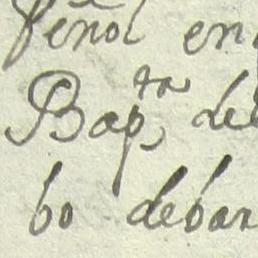 señol en
Bap^ta de
bo debar